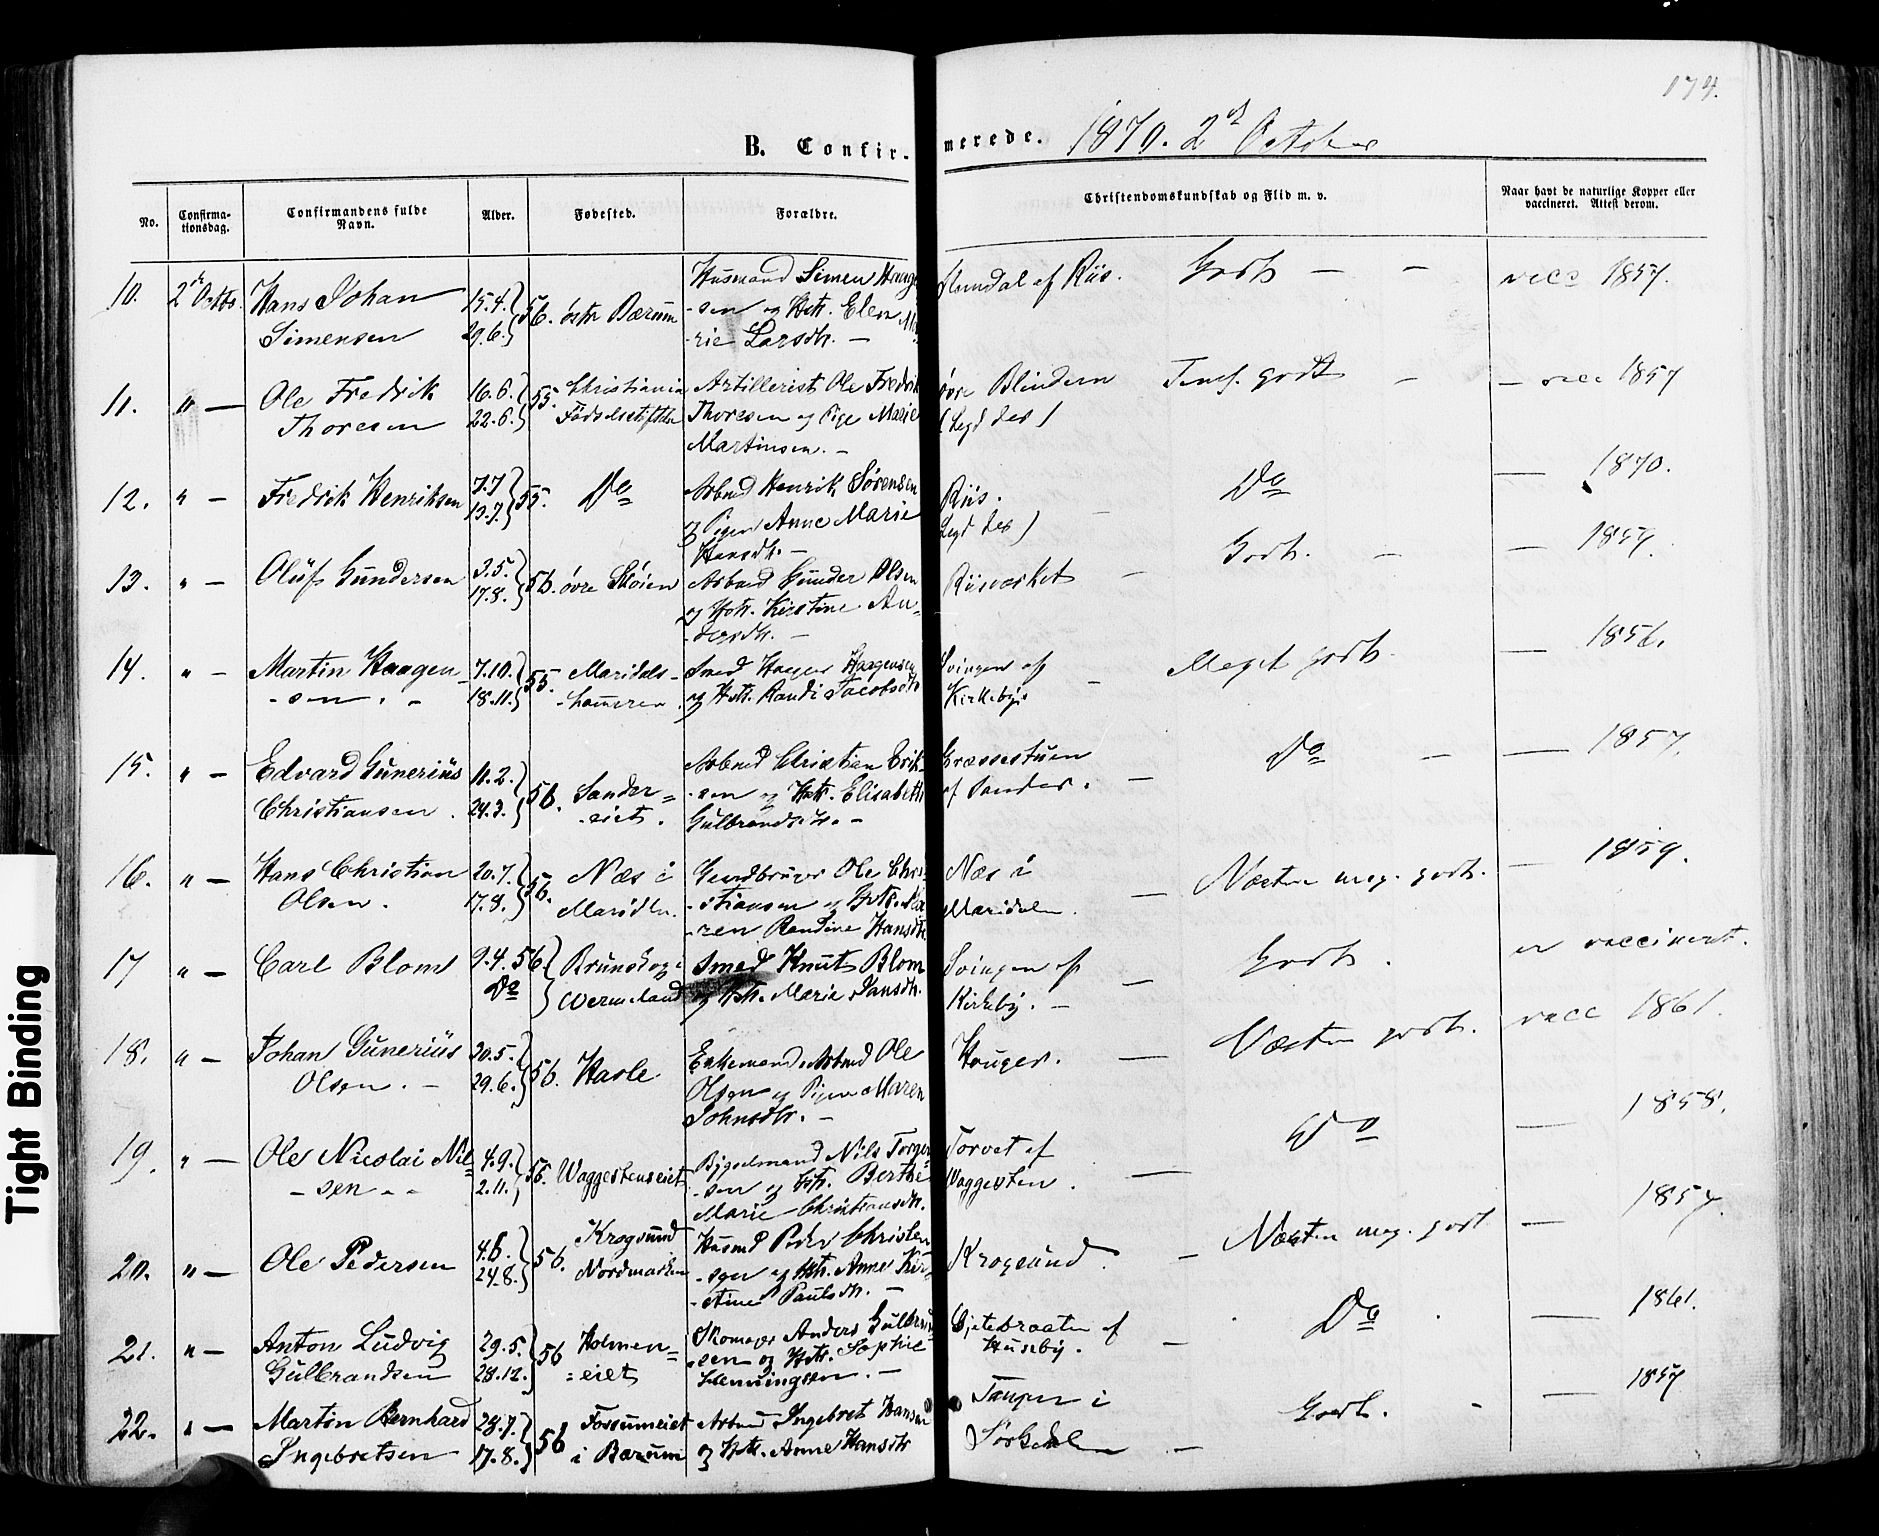 174.
B. Confir-
merede. 1870. 2d October
No.
Confirma-
tionsdag.
Confirmandens fulde
Navn.
Alder.
Fødested.
Forældre.
Christendomskundskab og Flid m. v.
Naar havt de naturlige Kopper eller
vaccineret. Attest derom.
10. 2d Octbr. Hans Johan
Simensen
15.4.
29.6. 56. östr Bærum
Husmand Simen Haagen
-sen og Hstr. Elen Ma
-rie Larsdtr. -
af Riis. Godt - - vacc 1857.
11. " - Ole Fredrik
Thoresen
16.6.
22.6. 55. Christiania
Födselsstiftelse
Artillerist Ole Fredrik
Thoresen og Pige Marie
Martinsen. -
övre Blindern
(Legd der)
Temf. godt - - vacc 1857
12. " - Fredrik Henriksen
7.7
19.7. 55. Do
Arbmd Henrik Sörensen
og Pigen Anne Marie
Hansdtr. -
Riis.
Legd der)
Do - 1870.
13. " - Oluf Gundersen
3.5.
17.8. 56. övre Sköien
Arbmd Gunder Olsen
og Hstr. Kirstine An-
-dersdtr. -
Riisværket - Godt. - - 1857.
14. " - Martin Haagen-
-sen. -
7.10.
18.11. 55. Maridals-
-hameren.
Smed Haagen Haagensen
og Hstr. Randi Jacobsdtr
Svingen af
Kirkeby.
- Meget godt. - 1856.
15. " - Edvard Gunerius
Christiansen.
11.2.
24.3. 56. Sander-
-eiet.
Arbmd Christian Erik-
-sen og Hstr. Elisabeth
Gulbrandsdtr. -
Græssestuen
af Sander. - Do - - 1857.
16. " - Hans Christian
Olsen.
20.7.
17.8. 56. Næs i
Maridln.
Grundbruger Ole Chri-
-stiansen og Hstr. Ka
-ren Randine Hansdtr.
Næs i
Maridalen.
- Næsten meg. godt. - 1859.
17 " - Carl Blom
9.4.56
Do
Brunskog i
Wermeland
Smed Knut Blom
og Hstr. Marie Jansdtr.
Svingen af
Kirkeby. -
- Godt. er vaccineret.
18. " - Johan Gunerius
Olsen. -
20.5.
29.6. 56. Hasle
Enkemand, Arbmd Ole
Olsen og Pigen Maren
Johnsdtr. -
Houger. - Næsten godt. vacc 1861.
19. " - Ole Nicolai Nil-
-sen - -
4.9.
2.11. 56. Waggesteneiet
Bygselmand Nils Torger-
-sen og Hstr. Berthe
Marie Christiansdtr.
Torvet af
Vaggesten. - Do - 1858.
20. " - Ole Pedersen
4.6.
24.8. 56. Krogsund
Nordmarken
Husmd Peder Christen
-sen og Hstr. Anne Kir-
-stine Paulsdtr. -
Krogsund. - Næsten meg. godt - 1857.
21. " - Anton Ludvig
Gulbrandsen
29.5.
28.12. 56 Holmen-
-eiet
Skomager Anders Gulbrand
-sen og Hstr. Sophie
Henningsen. -
Gjetebraaten af
Huseby. - Do. - 1861.
22. " - Martin Bernhard
Ingebretsen
28.7.
17.8. 56 Fossumeiet
i Bærum
Arbmd Ingebret Hansen
og Hstr. Anne Hansdtr
i
Sörkedalen - Godt. - - 1857
Tight Binding